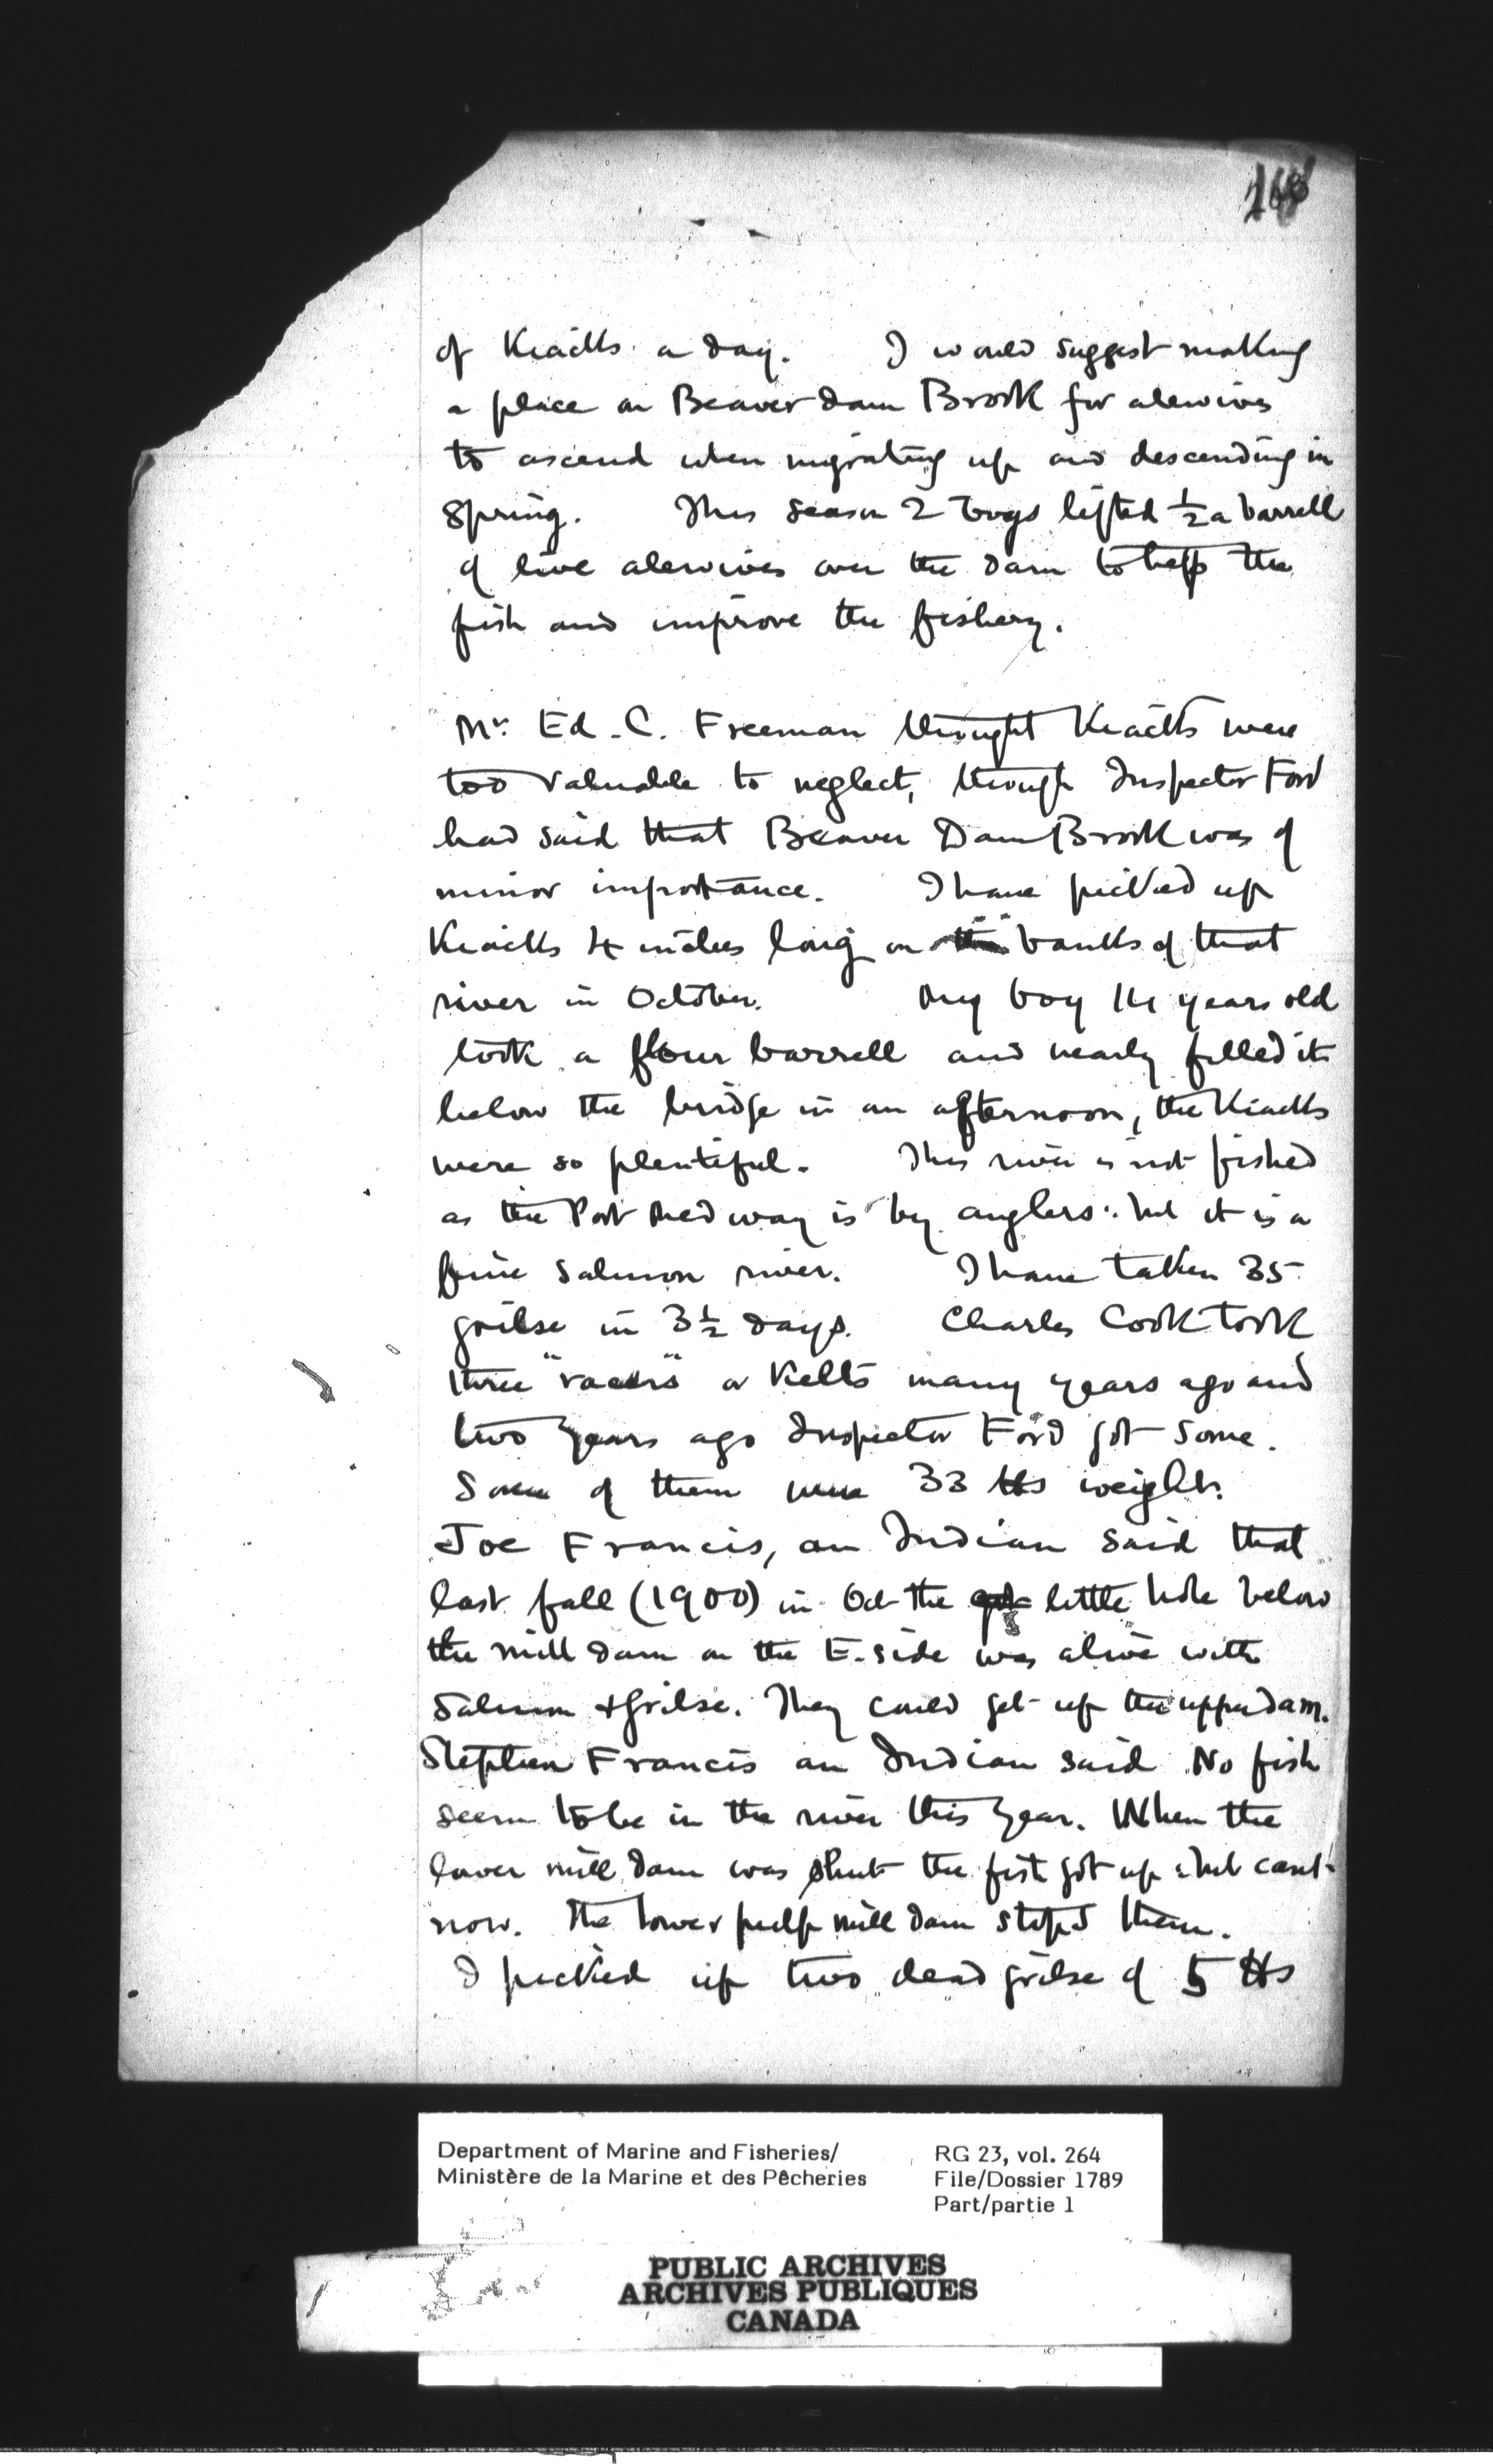 of Kiacks a day. I would suggest making
a place on Beaver dam Brook for alewives
to ascend when migrating up and descending in
Spring. This season 2 boys lifted ½ a barrell
of live alewives over the dam to help the
fish and improve the fishery.
Mr. Ed. C. Freeman thought Kiacks were
too valuable to neglect, though Inspector Ford
had said that Beaver Dam Brook was of
minor importance. I have picked up
Kiacks 4 inches long on the banks of that
river in October. My boy 14 years old
took a flour barrell and nearly filled it
below the bridge in an afternoon, the Kiacks
were so plentiful. This river is not fished
as the Port Medway is by anglers: but it is a
fine salmon river. I have taken 35
grilse in 3½ days. Charles Cook took
three "racers" or Kelts many years ago and
two years ago Inspector Ford got some.
Some of them were 33 lbs weight.
Joe Francis, an Indian said that
last fall (1900) in Oct the little hole below
the mill dam on the E. side was alive with
Salmon & grilse. They could get up the upper dam.
Stephen Francis an Indian said No fish
seem to be in the river this year. When the
lower mill dam was shut the fish got up but can't
now. The lower pulp mill dam stop'd them.
I picked up two dead grilse of 5 lbs
Department of Marine and Fisheries/
Ministère de la Marine et des Pêcheries
RG 23, vol. 264
File/Dossier 1789
Part/partie 1
PUBLIC ARCHIVES
ARCHIVES PUBLIQUES
CANADA